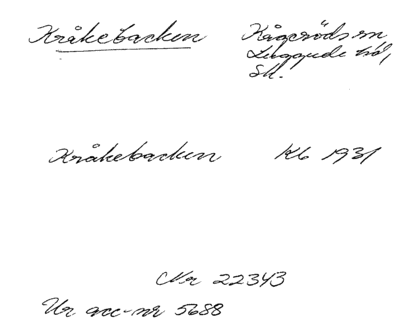 Kråkebacken Kågeröds sn
Luggude hd,
Sk.
Kråkebacken Kb 1931
Nr 22343
Ur acc-nr 5688